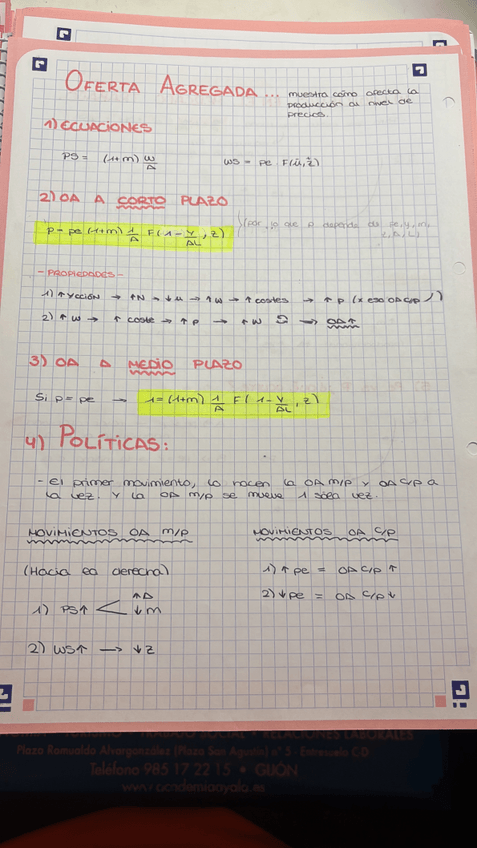 OFERTA AGREGADA... muestra cómo afecta la
producción al nivel de
precios.
1) ECUACIONES
PS = (1+m) W/A     WS = Pe F(û, ẑ)
2) OA A CORTO PLAZO
P = Pe (1+m) 1/A F(1 - Y/AL, z)
(por lo que p depende de pe, y, m,
- PROPIEDADES -
1) ↑Ycción → ↑N → ↓u → ↑w → ↑costes → ↑p (x eso OA c/p /)
2) ↑w → ↑ coste → ↑p → ↑w → OA↑
3) OA A MEDIO PLAZO
Si p = pe → 1 = (1+m) 1/A F(1 - Y/AL, z)
4) POLÍTICAS:
- El primer movimiento, lo hacen la OA m/p y OA c/p a
la vez. Y la OA m/p se mueve 1 sola vez.
MOVIMIENTOS OA M/P     MOVIMIENTOS OA C/P
(Hacia la derecha)     1) ↑pe = OA c/p ↑
1) PS↑ < ↑A ↓m     2) ↓pe = OA c/p ↓
2) WS↑ → ↓z
RELACIONES LABORALES
Plaza Romualdo Alvargonzález (Plaza San Agustín) nº 5 - Entresuelo C.D.
Teléfono 985 17 22 15 • GIJÓN
www.academiaayala.es